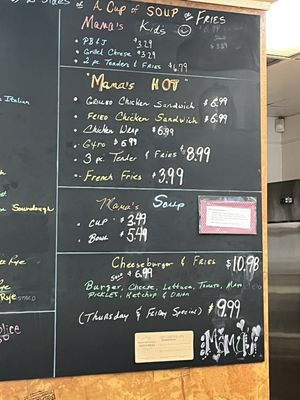 A Cup of SOUP or FRIES
Mama's Kids
• PB & J $3.29
• Grilled Cheese $3.29
• 2 pc Tenders & Fries $6.99
"Mama's HOT"
• Grilled Chicken Sandwich $6.99
• Fried Chicken Sandwich $6.99
• Chicken Wrap $6.99
• Gyro $6.99
• 3 pc. Tender & Fries $8.99
• French Fries $3.99
Mama's Soup
• Cup $3.49
• Bowl $5.49
Cheeseburger & Fries $10.98
$6.99
Burger, Cheese, Lettuce, Tomato, Mayo
Pickles, Ketchup & Onion
(Thursday & Friday Special) $9.99
Italian
Sourdough
Rye